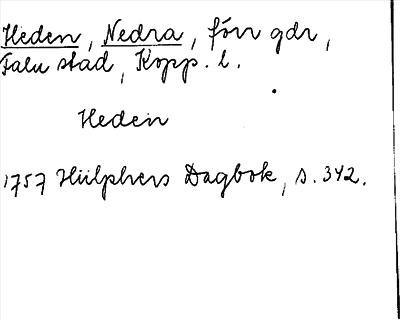 Heden, Nedra, förr gdr,
Falu stad, Kopp. l.
Heden
1757 Hülphers Dagbok, s. 342.